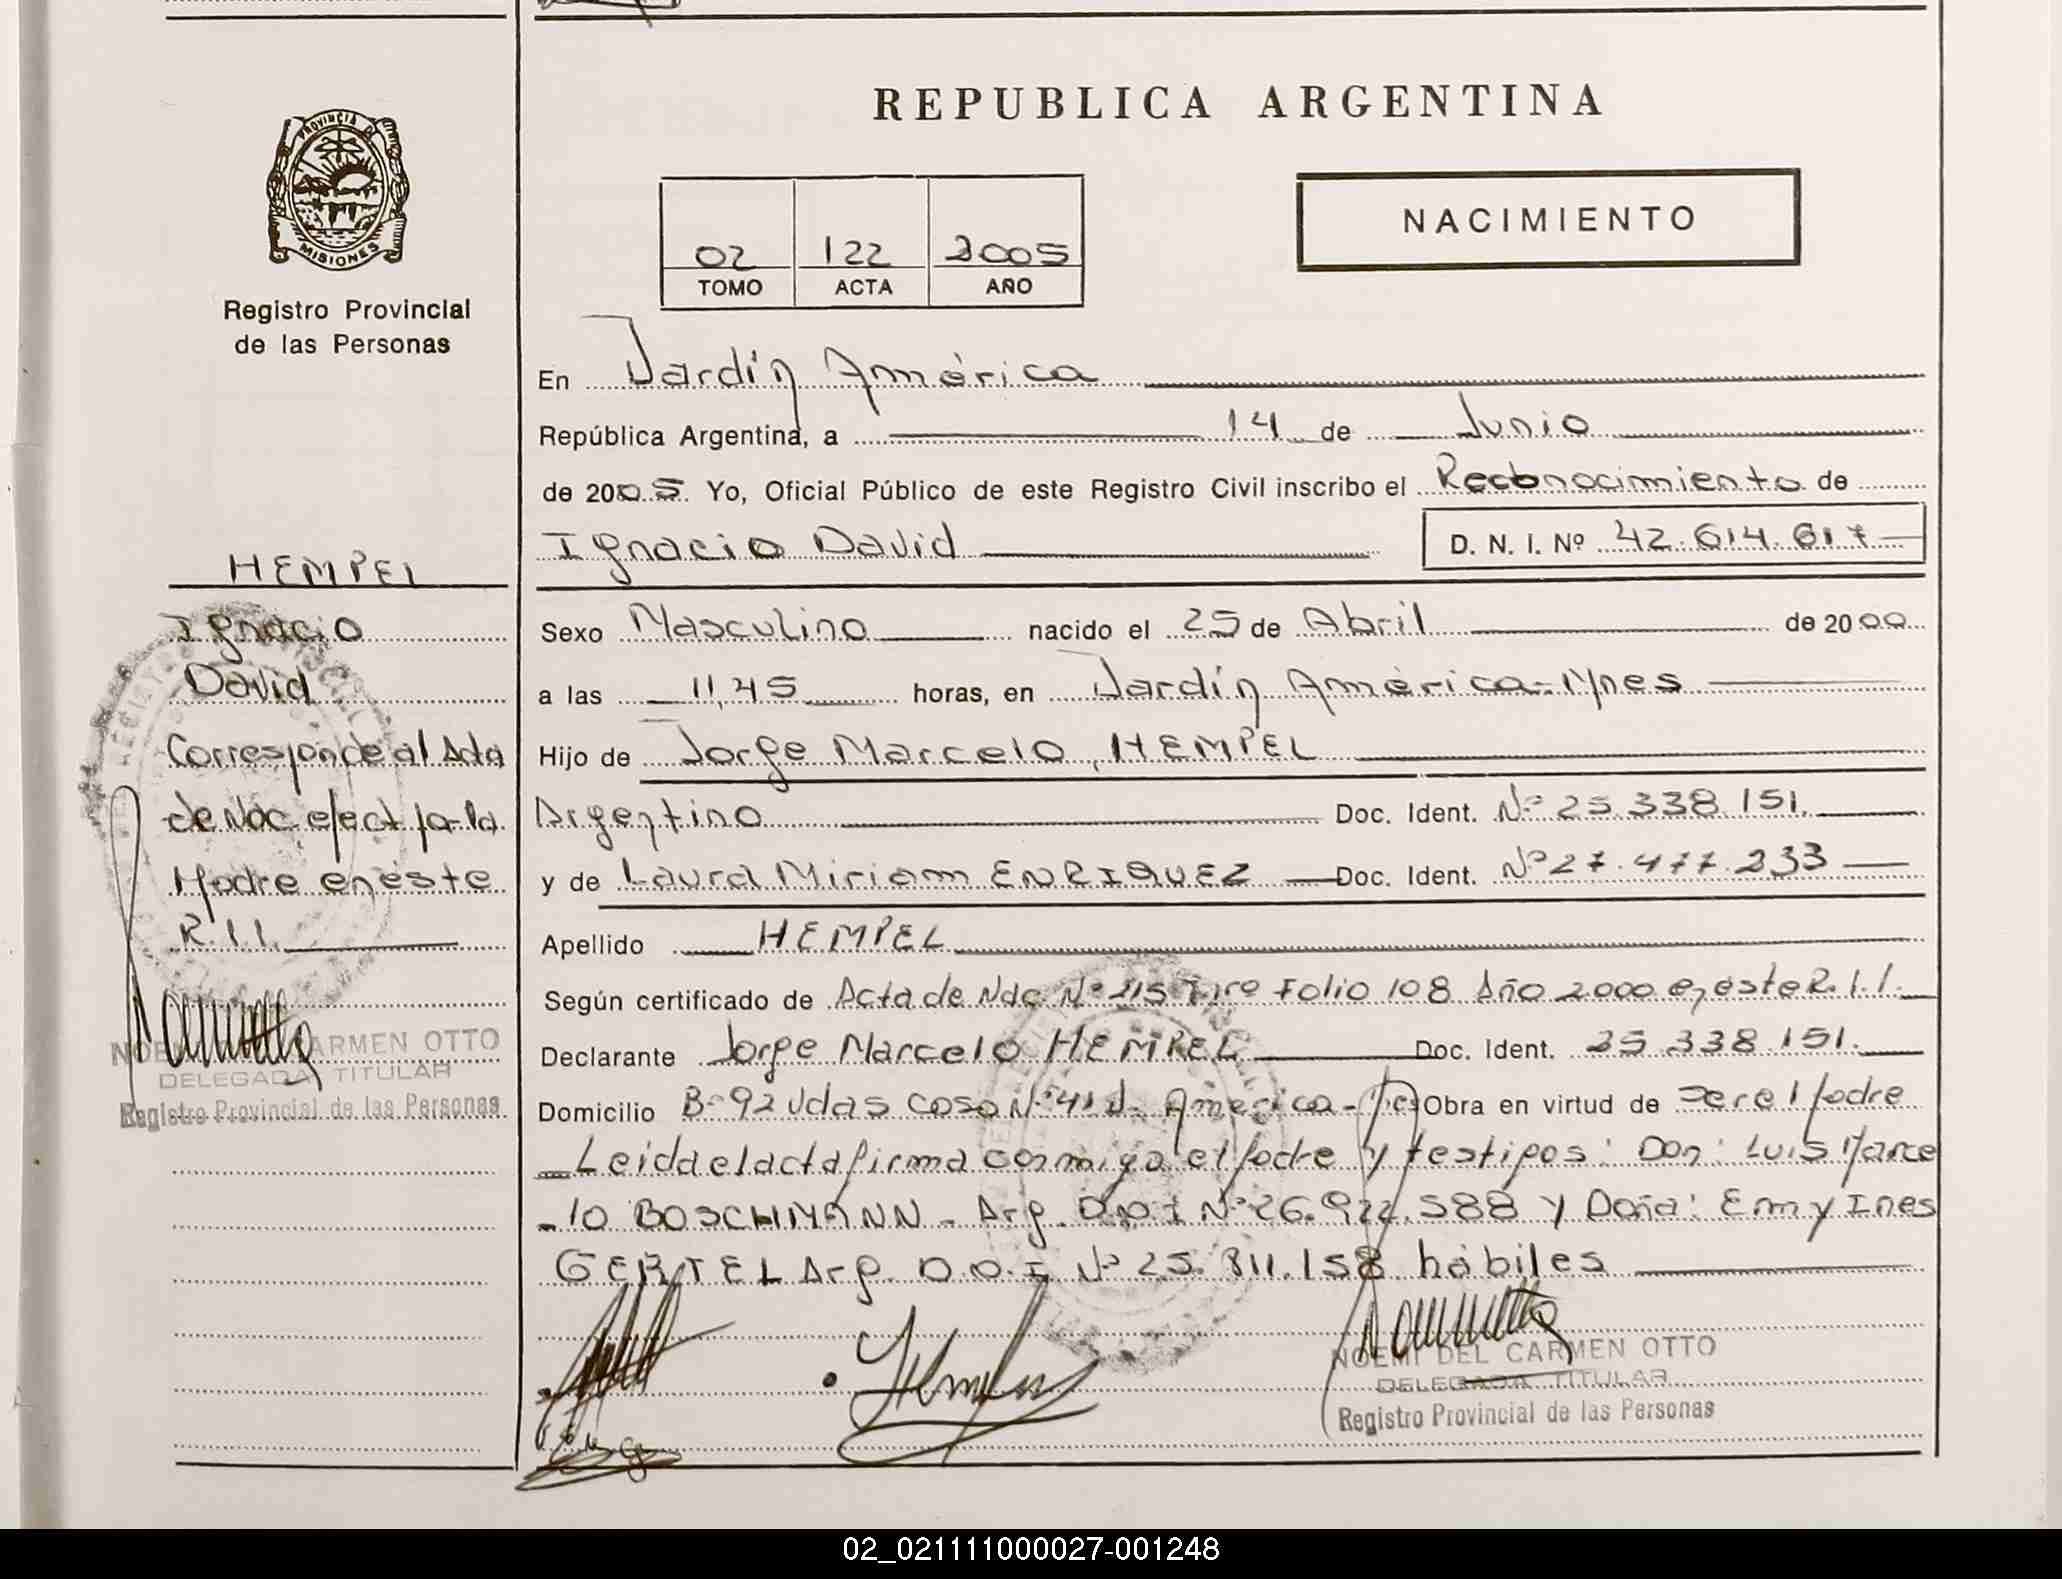 PROVINCIA DE
MISIONES
Registro Provincial
de las Personas
HEMPEL
Ignacio
David
Corresponde al Acta
de Nac. efect. por la
Madre en éste
R.P.P.
NOEMI DEL CARMEN OTTO
DELEGADA TITULAR
Registro Provincial de las Personas
REPUBLICA ARGENTINA
NACIMIENTO
02 122 2005
TOMO ACTA AÑO
En Jardín América
República Argentina, a 14 de Junio
de 2005. Yo, Oficial Público de este Registro Civil inscribo el Reconocimiento de
Ignacio David D. N. I. Nº 42.614.617
Sexo Masculino nacido el 25 de Abril de 2000
a las 11,45 horas, en Jardín América-Mnes
Hijo de Jorge Marcelo HEMPEL
Argentino Doc. Ident. Nº 25.338.151.
y de Laura Miriam ENRIQUEZ Doc. Ident. Nº 27.477.233
Apellido HEMPEL
Según certificado de Acta de Nac. Nº 215 Folio 108 Año 2000 en éste R.P.P.
Declarante Jorge Marcelo HEMPEL Doc. Ident. 25.338.151.
Domicilio Bº 92 Vdas Casa Nº 41 J. América- Obra en virtud de ser el Padre
Leida el acta firma conmigo el Padre y testigos: Don: Luis Marce
lo BOSCHMANN - Arg. D.N.I Nº 26.922.588 y Doña: Emy Ines
GERTEL Arg. D.N.I Nº 25.811.158 hábiles
NOEMI DEL CARMEN OTTO
DELEGADA TITULAR
Registro Provincial de las Personas
02_021111000027-001248